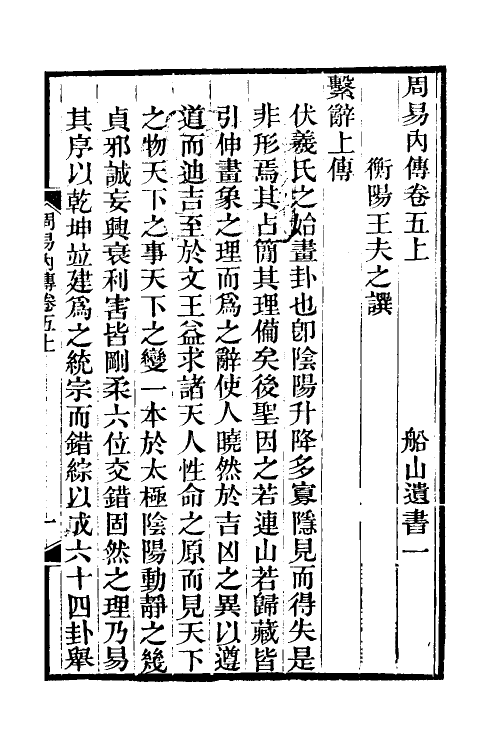 周易內傳卷五上
船山遺書一
衡陽王夫之譔
繫辭上傳
伏羲氏之始畫卦也卽陰陽升降多寡隱見而得失是
非形焉其占簡其理備矣後聖因之若連山若歸藏皆
引伸畫象之理而爲之辭使人曉然於吉凶之異以遵
道而迪吉至於文王益求諸天人性命之原而見天下
之物天下之事天下之變一本於太極陰陽動靜之幾
貞邪誠妄興衰利害皆剛柔六位交錯固然之理乃易
其序以乾坤竝建爲之統宗而錯綜以成六十四卦舉
周易內傳卷五上
一